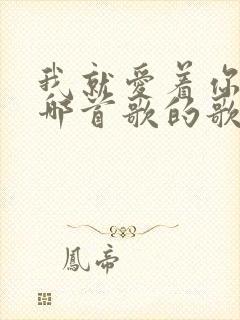 我就爱着你
那首歌的歌
凤帝